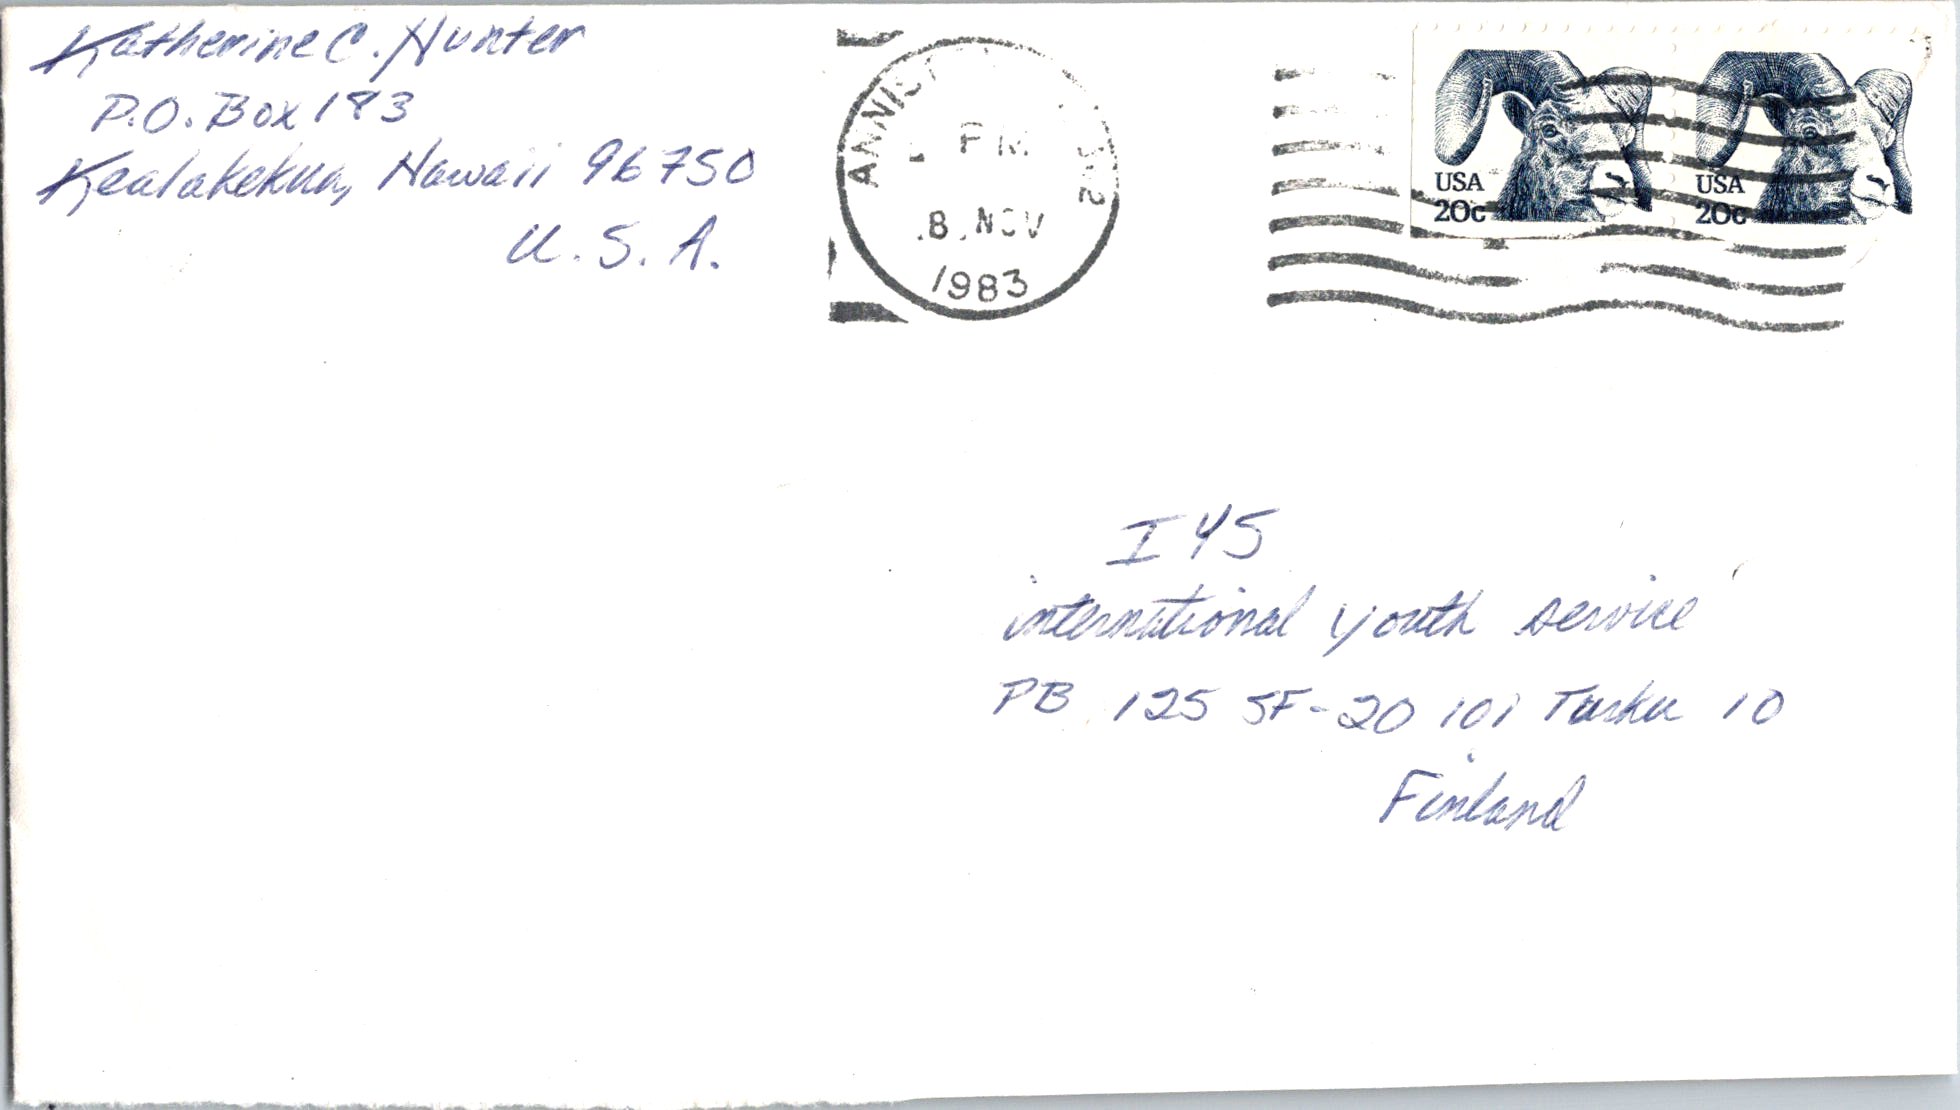 Katherine C. Hunter
P.O. Box 183
Kealakekua, Hawaii 96750
U.S.A.
PM
8 NOV
1983
USA
20c
USA
20c
IYS
international youth service
PB 125 SF-20 101 Turku 10
Finland